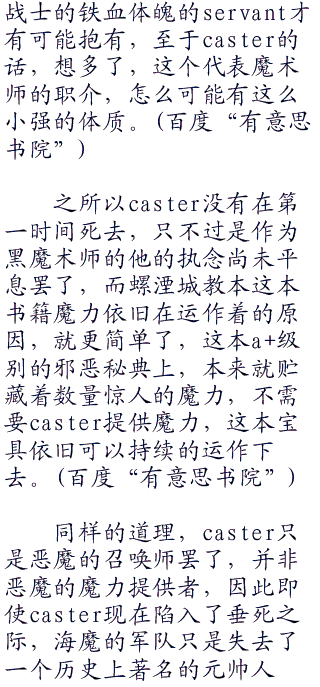 战士的铁血体魄的servant才
有可能抱有，至于caster的
话，想多了，这个代表魔术
师的职介，怎么可能有这么
小强的体质。(百度“有意思
书院”)
之所以caster没有在第
一时间死去，只不过是作为
黑魔术师的他的执念尚未平
息罢了，而螺湮城教本这本
书籍魔力依旧在运作着的原
因，就更简单了，这本a+级
别的邪恶秘典上，本来就贮
藏着数量惊人的魔力，不需
要caster提供魔力，这本宝
具依旧可以持续的运作下
去。(百度“有意思书院”)
同样的道理，caster只
是恶魔的召唤师罢了，并非
恶魔的魔力提供者，因此即
使caster现在陷入了垂死之
际，海魔的军队只是失去了
一个历史上著名的元帅人